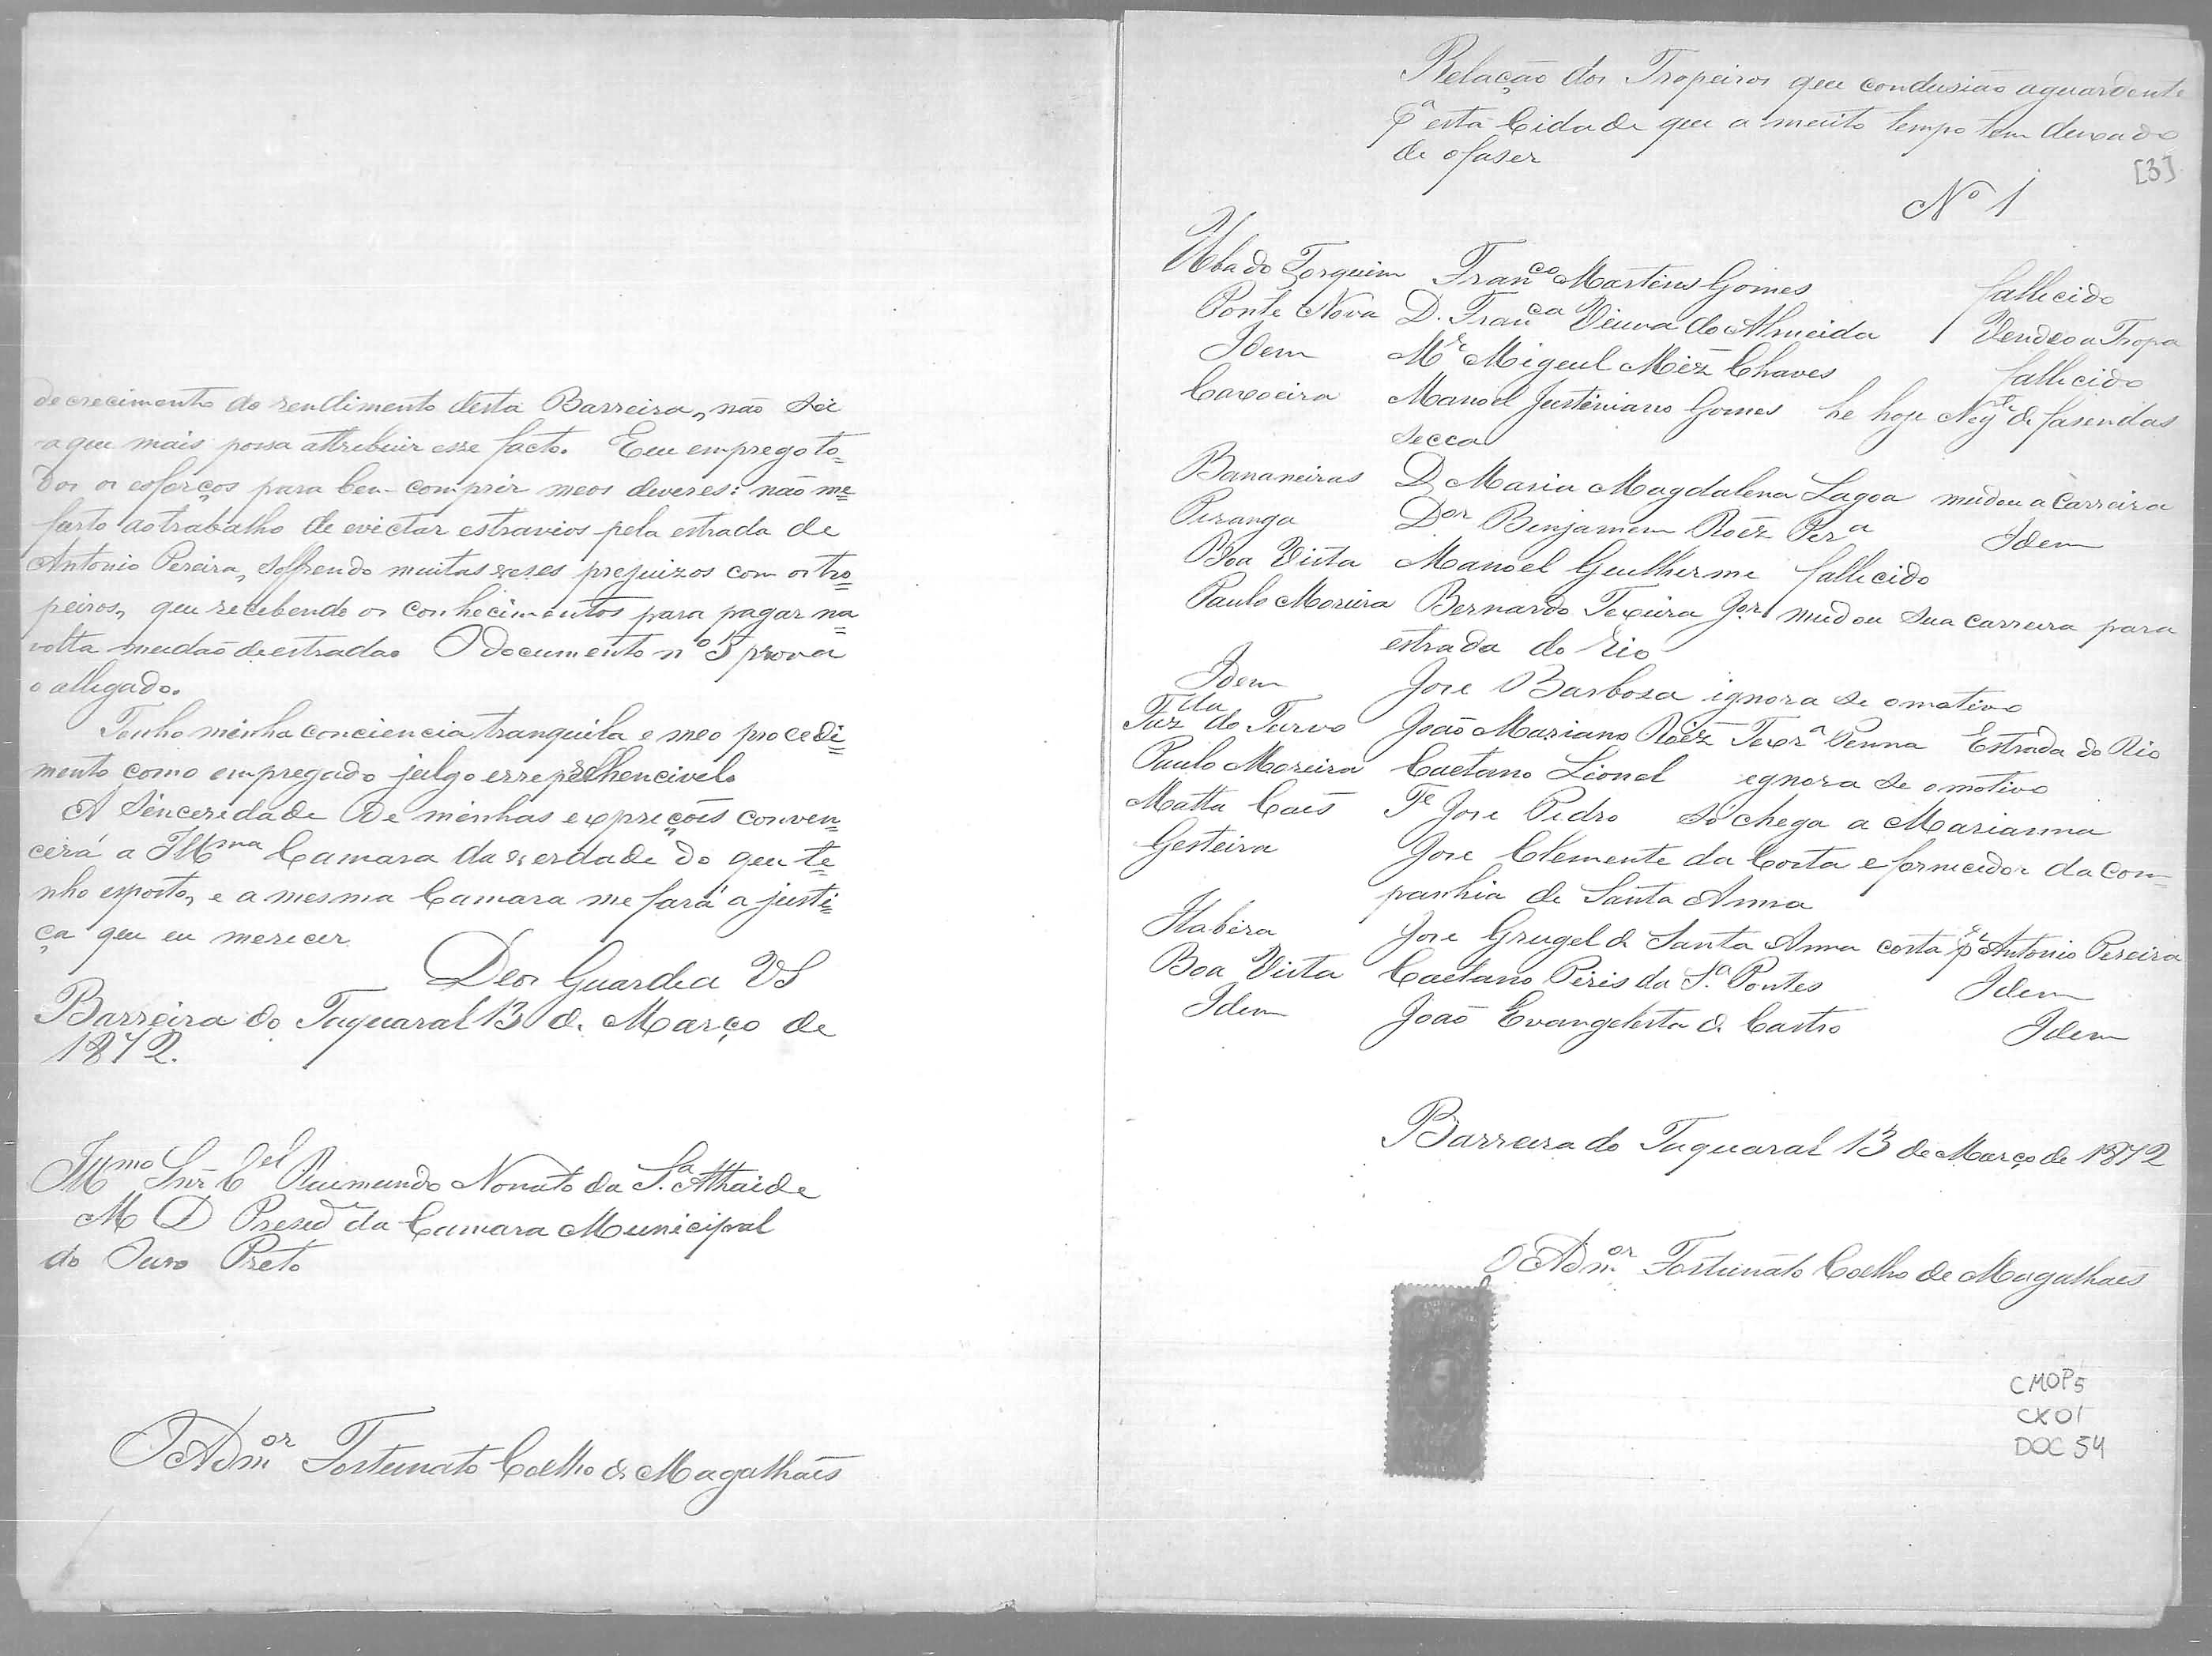 decrecimento do rendimento desta Barreira, não sei
a que mais possa attribuir esse facto. Eu emprego to=
dos os esforços para bem comprir meos deveres: não me
furto ao trabalho de evictar estravios pela estrada de
Antonio Pereira, soffrendo muitas veses prejuizos com os tro=
peiros, que recebendo os conhecimentos para pagar na
volta mudão de estrada. O documento nº 3 prova
o allegado.
Tenho minha conciencia tranquila e meo procedi=
mento como empregado julgo erreprehencivel.
A Sinceridade de minhas expreções conven=
cerá a Illma Camara da verdade do que te=
nho exposto, e a mesma Camara me fará a justi=
ça que eu merecer
Deos Guarde a VS
Barreira do Taquaral 13 de Março de
1872.
Illmo Snr Cel Raimundo Nonato da Sa. Athaide
M D Presid da Camara Municipal
do Ouro Preto
O Admor Fortunato Coelho de Magalhães
Relação dos Tropeiros que condusião aguardente
Pa esta Cidade que a muito tempo tem deixado
de o faser
[3]
No 1
Uba do Forquim Franco Martins Gomes fallicido
Ponte Nova D. Franca Viuva do Almeida Vendeo a Tropa
Idem Mel Miguel Miz Chaves fallicido
Caxoeira Manoel Justiniano Gomes he hoje Negte de fasendas
secca
Bananeiras D Maria Magdalena Lagoa mudou a Carreira
Piranga Dor Binjamem Roiz Pera Idem
Boa Vista Manoel Guilherme fallicido
Paulo Moreira Bernardo Texeira Jor mudou sua carreira para
estrada do Rio
Idem Jose Barbosa ignora se o motivo
Fazda do Turvo João Mariano Roiz Texra Penna Estrada do Rio
Paulo Moreira Caetano Lionel ignora se o motivo
Matta Caes Te Jose Pedro Só chega a Marianna
Gesteira Jose Clemente da Costa e fornicedor da Com=
panhia de Santa Anna
Itabira Jose Grugel de Santa Anna corta pr Antonio Pereira
Boa Vista Caetano Piris da Sa. Pontes Idem
Idem João Evangelista de Castro Idem
Barreira do Taquaral 13 de Março de 1872
O Admor Fortunato Coelho de Magalhães
CMOP5
CX01
DOC 54